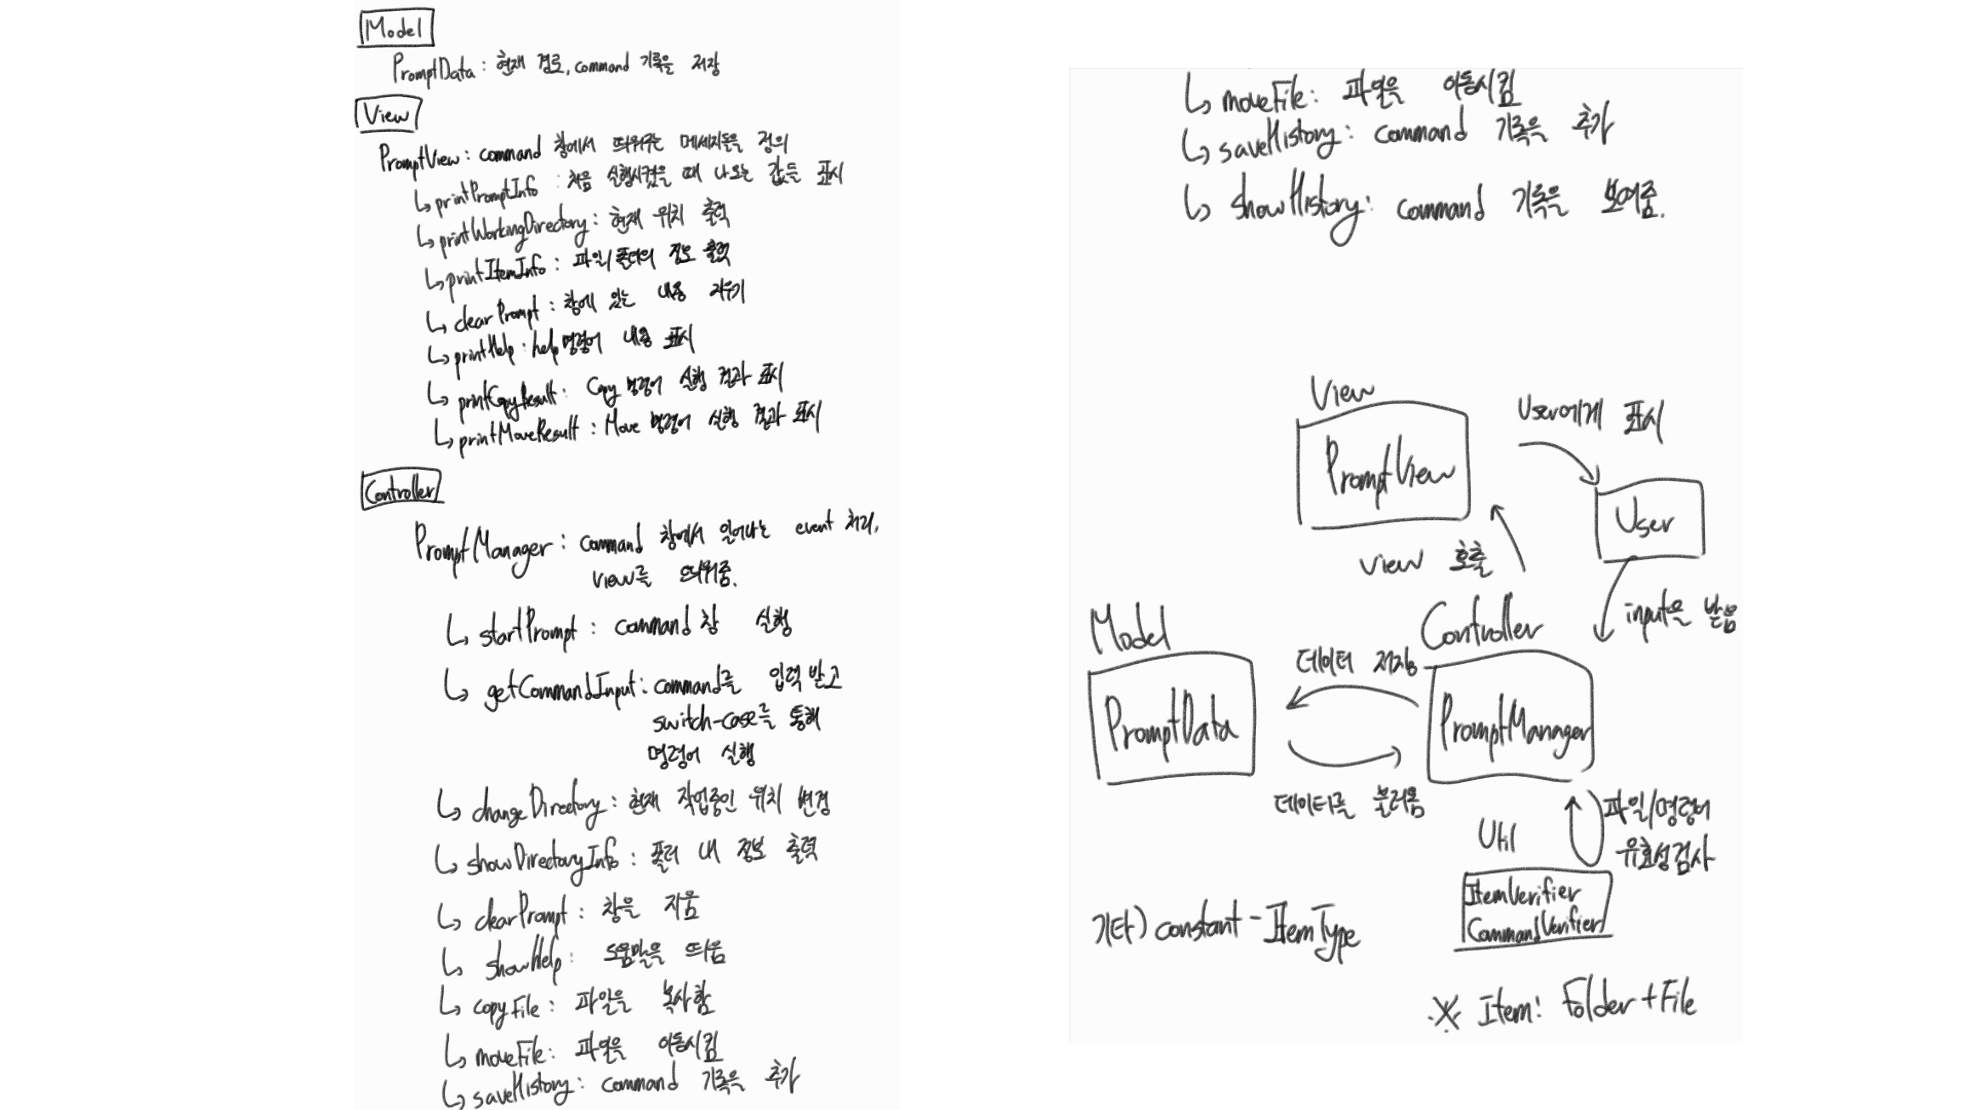 Model
PromptData : 현재 경로, command 기록을 저장
View
PromptView : command 창에서 띄워주는 메세지들을 정의
↳ printPromptInfo : 처음 실행시켰을 때 나오는 값들 표시
↳ printWorkingDirectory : 현재 위치 출력
↳ printItemInfo : 파일/폴더의 정보 출력
↳ clearPrompt : 창에 있는 내용 지우기
↳ printHelp : help 명령어 내용 표시
↳ printCopyResult : Copy 명령어 실행 결과 표시
↳ printMoveResult : Move 명령어 실행 결과 표시
Controller
PromptManager : command 창에서 일어나는 event 처리,
view를 띄워줌.
↳ startPrompt : command 창 실행
↳ getCommandInput : command를 입력 받고
switch-case를 통해
명령어 실행
↳ changeDirectory : 현재 작업중인 위치 변경
↳ showDirectoryInfo : 폴더 내 정보 출력
↳ clearPrompt : 창을 지움
↳ showHelp : 도움말을 띄움
↳ copyFile : 파일을 복사함
↳ moveFile : 파일을 이동시킴
↳ saveHistory : command 기록을 추가
↳ moveFile : 파일을 이동시킴
↳ saveHistory : command 기록을 추가
↳ showHistory : command 기록을 보여줌.
View
PromptView
User에게 표시
User
view 호출
input을 받음
Model
PromptData
데이터 저장
데이터를 불러옴
Controller
PromptManager
파일/명령어
유효성검사
Util
ItemVerifier
CommandVerifier
기타) constant - ItemType
※ Item : Folder + File